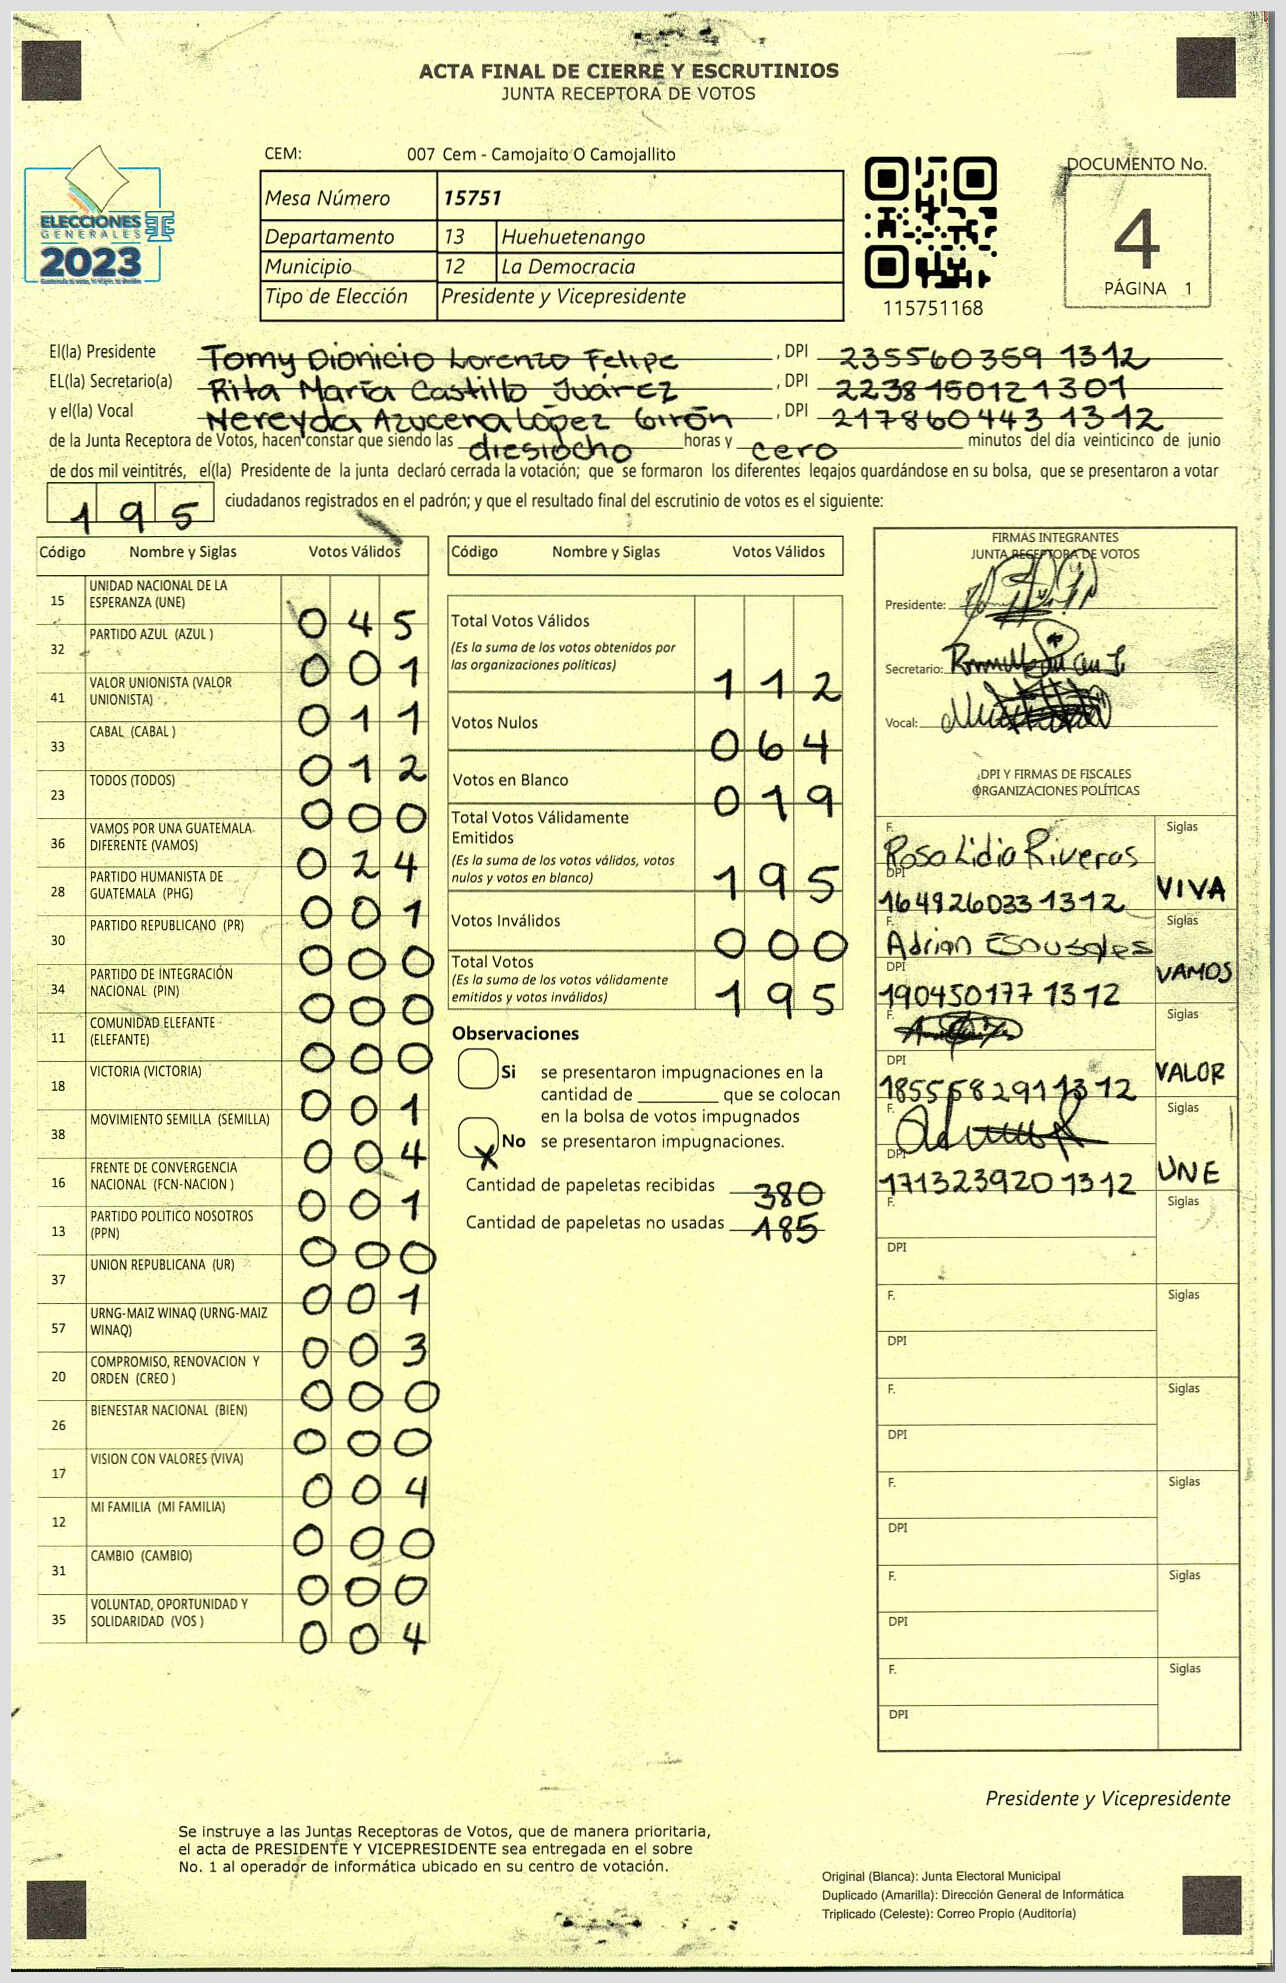 ACTA FINAL DE CIERRE Y ESCRUTINIOS
JUNTA RECEPTORA DE VOTOS
ELECCIONES
GENERALES
2023
CEM: 007 Cem - Camojaito O Camojallito
Mesa Número 15751
Departamento 13 Huehuetenango
Municipio 12 La Democracia
Tipo de Elección Presidente y Vicepresidente
115751168
DOCUMENTO No.
4
PÁGINA 1
El(la) Presidente Tomy Dionicio Lorenzo Felipe , DPI 235560359 1312
EL(la) Secretario(a) Rita María Castillo Juárez , DPI 223815012 1301
y el(la) Vocal Nereyda Azucena López Girón , DPI 217860443 1312
de la Junta Receptora de Votos, hacen constar que siendo las diesiocho horas y cero minutos del día veinticinco de junio
de dos mil veintitrés, el(la) Presidente de la junta declaró cerrada la votación; que se formaron los diferentes legajos quardándose en su bolsa, que se presentaron a votar
195 ciudadanos registrados en el padrón; y que el resultado final del escrutinio de votos es el siguiente:
Código Nombre y Siglas Votos Válidos
15 UNIDAD NACIONAL DE LA ESPERANZA (UNE) 045
32 PARTIDO AZUL (AZUL ) 001
41 VALOR UNIONISTA (VALOR UNIONISTA) 011
33 CABAL (CABAL ) 012
23 TODOS (TODOS) 000
36 VAMOS POR UNA GUATEMALA DIFERENTE (VAMOS) 024
28 PARTIDO HUMANISTA DE GUATEMALA (PHG) 001
30 PARTIDO REPUBLICANO (PR) 000
34 PARTIDO DE INTEGRACIÓN NACIONAL (PIN) 000
11 COMUNIDAD ELEFANTE (ELEFANTE) 000
18 VICTORIA (VICTORIA) 001
38 MOVIMIENTO SEMILLA (SEMILLA) 004
16 FRENTE DE CONVERGENCIA NACIONAL (FCN-NACION ) 001
13 PARTIDO POLITICO NOSOTROS (PPN) 000
37 UNION REPUBLICANA (UR) 001
57 URNG-MAIZ WINAQ (URNG-MAIZ WINAQ) 003
20 COMPROMISO, RENOVACION Y ORDEN (CREO ) 000
26 BIENESTAR NACIONAL (BIEN) 000
17 VISION CON VALORES (VIVA) 004
12 MI FAMILIA (MI FAMILIA) 000
31 CAMBIO (CAMBIO) 000
35 VOLUNTAD, OPORTUNIDAD Y SOLIDARIDAD (VOS ) 004
Código Nombre y Siglas Votos Válidos
Total Votos Válidos 112
(Es la suma de los votos obtenidos por
las organizaciones políticas)
Votos Nulos 064
Votos en Blanco 019
Total Votos Válidamente
Emitidos 195
(Es la suma de los votos válidos, votos
nulos y votos en blanco)
Votos Inválidos 000
Total Votos 195
(Es la suma de los votos válidamente
emitidos y votos inválidos)
Observaciones
Si se presentaron impugnaciones en la
cantidad de ________ que se colocan
en la bolsa de votos impugnados
X No se presentaron impugnaciones.
Cantidad de papeletas recibidas 380
Cantidad de papeletas no usadas 185
FIRMAS INTEGRANTES
JUNTA RECEPTORA DE VOTOS
Presidente:
Secretario:
Vocal:
DPI Y FIRMAS DE FISCALES
ORGANIZACIONES POLÍTICAS
F. Rosa Lidia Riveras Siglas
DPI 164926033 1312 VIVA
F. Adrian Siglas
DPI 190450177 1312 VAMOS
F. Siglas
DPI 185558291 1312 VALOR
F. Siglas
DPI 171323920 1312 UNE
F. Siglas
DPI
F. Siglas
DPI
F. Siglas
DPI
F. Siglas
DPI
F. Siglas
DPI
F. Siglas
DPI
Presidente y Vicepresidente
Se instruye a las Juntas Receptoras de Votos, que de manera prioritaria,
el acta de PRESIDENTE Y VICEPRESIDENTE sea entregada en el sobre
No. 1 al operador de informática ubicado en su centro de votación.
Original (Blanca): Junta Electoral Municipal
Duplicado (Amarilla): Dirección General de Informática
Triplicado (Celeste): Correo Propio (Auditoría)